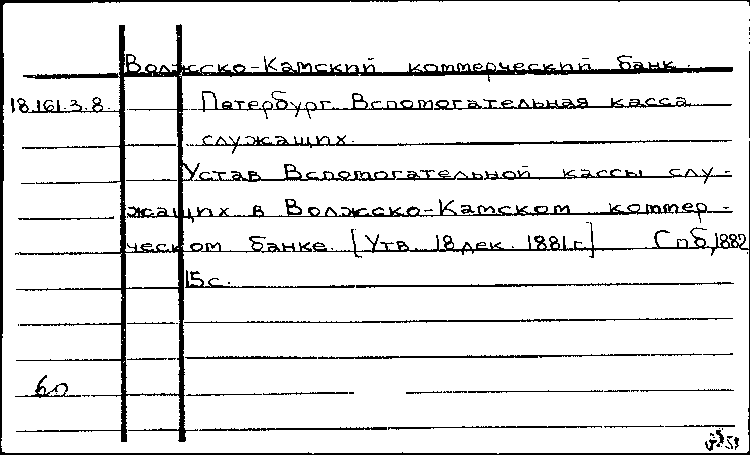 Волжско-Камский коммерческий банк.
18.161.3.8. Петербург. Вспомогательная касса
служащих.
Устав Вспомогательной кассы слу-
жащих в Волжско-Камском коммер-
ческом банке. [Утв. 18 дек. 1881 г.] Спб, 1882
15 с.
60